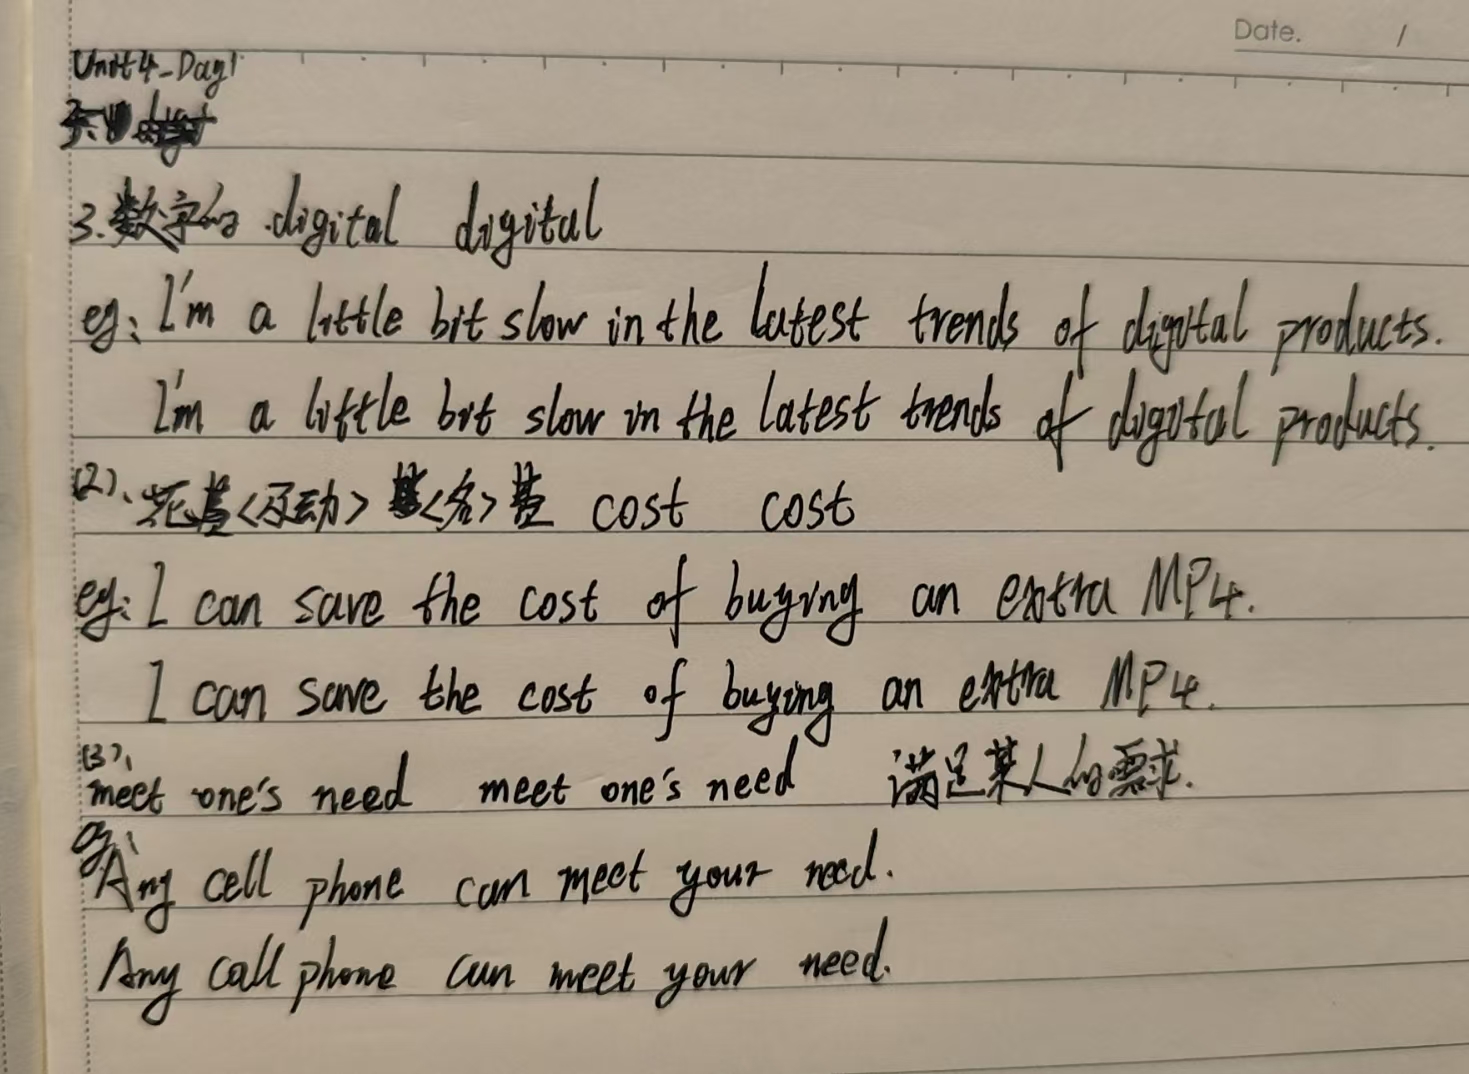 Date. /
Unit4-Day1
3.数字的 digital digital
eg: I'm a little bit slow in the latest trends of digital products.
I'm a little bit slow in the latest trends of digital products.
(2)、花费<及动> <名>费 cost cost
eg: I can save the cost of buying an extra MP4.
I can save the cost of buying an extra MP4.
(3)、
meet one's need meet one's need 满足某人的需求.
eg:
Any cell phone can meet your need.
Any call phone can meet your need.